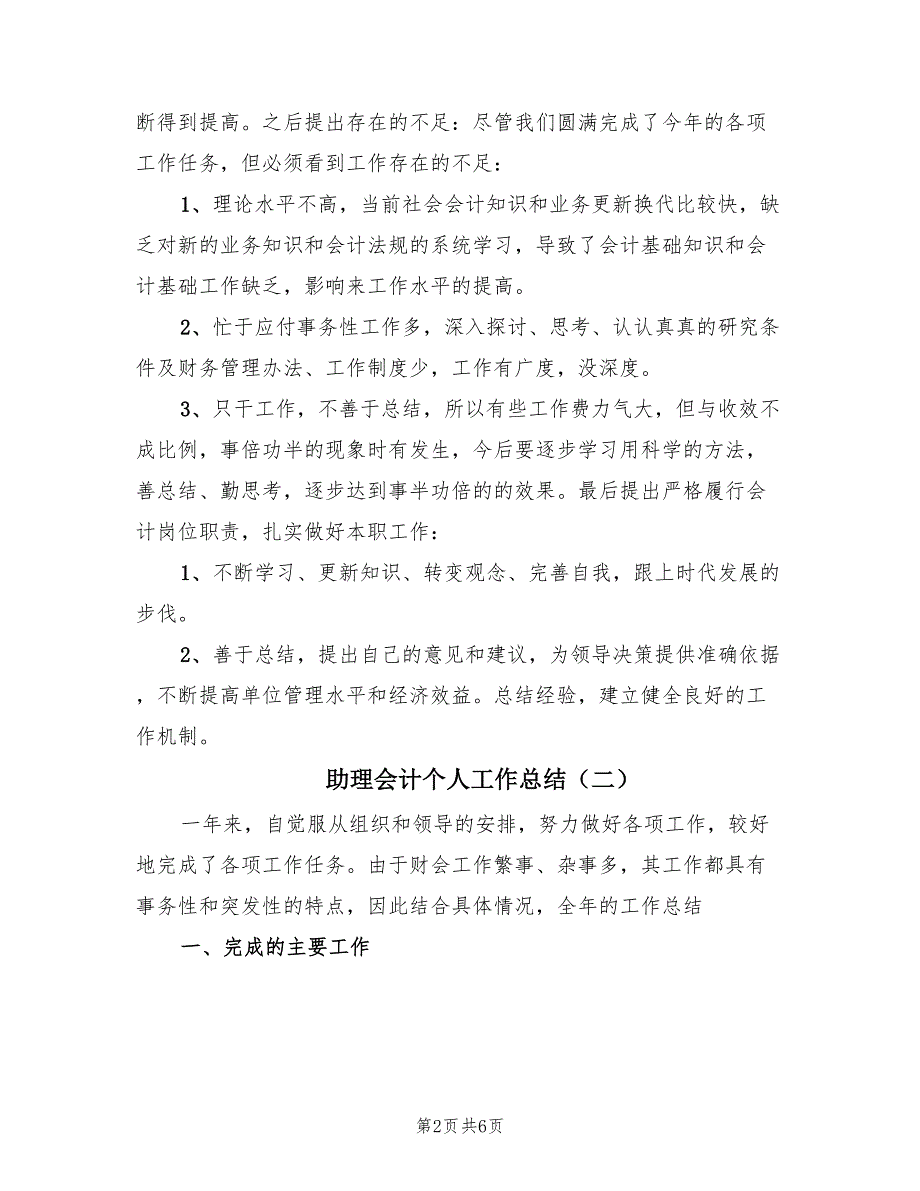 断得到提高。之后提出存在的不足：尽管我们圆满完成了今年的各项
工作任务，但必须看到工作存在的不足：
1、理论水平不高，当前社会会计知识和业务更新换代比较快，缺
乏对新的业务知识和会计法规的系统学习，导致了会计基础知识和会
计基础工作缺乏，影响来工作水平的提高。
2、忙于应付事务性工作多，深入探讨、思考、认认真真的研究条
件及财务管理办法、工作制度少，工作有广度，没深度。
3、只干工作，不善于总结，所以有些工作费力气大，但与收效不
成比例，事倍功半的现象时有发生，今后要逐步学习用科学的方法，
善总结、勤思考，逐步达到事半功倍的的效果。最后提出严格履行会
计岗位职责，扎实做好本职工作：
1、不断学习、更新知识、转变观念、完善自我，跟上时代发展的
步伐。
2、善于总结，提出自己的意见和建议，为领导决策提供准确依据
，不断提高单位管理水平和经济效益。总结经验，建立健全良好的工
作机制。
助理会计个人工作总结（二）
一年来，自觉服从组织和领导的安排，努力做好各项工作，较好
地完成了各项工作任务。由于财会工作繁事、杂事多，其工作都具有
事务性和突发性的特点，因此结合具体情况，全年的工作总结
一、完成的主要工作
第2页 共6页